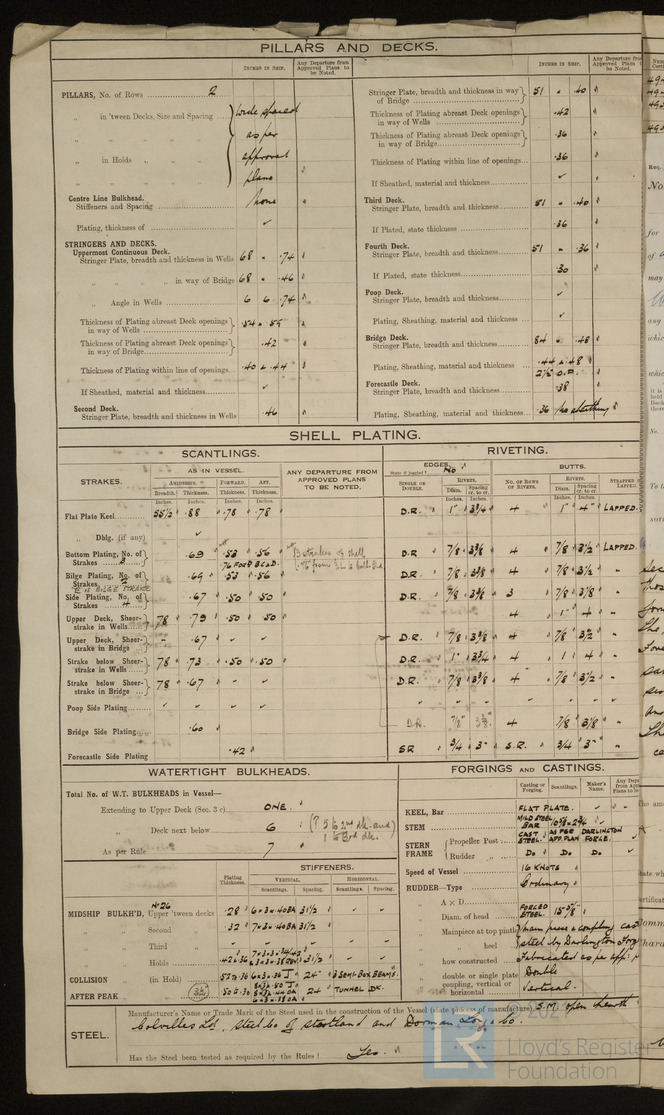 PILLARS AND DECKS.
INCHES IN SHIP.
Any Departure from Approved Plans to be Noted.
PILLARS, No. of Rows 2
„ in 'tween Decks, Size and Spacing wide spaced
„ „ „ as per
„ in Holds „ „ approved
„ „ „ plans
Centre Line Bulkhead.
Stiffeners and Spacing none
Plating, thickness of ✓
STRINGERS AND DECKS.
Uppermost Continuous Deck.
Stringer Plate, breadth and thickness in Wells 68 × .74
„ „ „ „ in way of Bridge 68 × .46
„ Angle in Wells 6 6 .74
Thickness of Plating abreast Deck openings in way of Wells .54 .55
Thickness of Plating abreast Deck openings in way of Bridge .42
Thickness of Plating within line of openings .40 & .44
If Sheathed, material and thickness ✓
Second Deck.
Stringer Plate, breadth and thickness in Wells .46
INCHES IN SHIP.
Any Departure from Approved Plans to be Noted.
Stringer Plate, breadth and thickness in way of Bridge 51 × .40
Thickness of Plating abreast Deck openings in way of Wells .42
Thickness of Plating abreast Deck openings in way of Bridge .36
Thickness of Plating within line of openings .36
If Sheathed, material and thickness ✓
Third Deck.
Stringer Plate, breadth and thickness 51 × .40
If Plated, state thickness .36
Fourth Deck.
Stringer Plate, breadth and thickness 51 × .36
If Plated, state thickness .30
Poop Deck.
Stringer Plate, breadth and thickness ✓
Plating, Sheathing, material and thickness ✓
Bridge Deck.
Stringer Plate, breadth and thickness 84 × .48
Plating, Sheathing, material and thickness .44 & .48 2½ O.P.
Forecastle Deck.
Stringer Plate, breadth and thickness .38
Plating, Sheathing, material and thickness .36 no sheathing
SHELL PLATING.
SCANTLINGS.
RIVETING.
STRAKES.
AS IN VESSEL.
AMIDSHIPS. FORWARD. AFT.
Breadth. Thickness. Thickness. Thickness.
Inches. Inches. Inches. Inches.
ANY DEPARTURE FROM APPROVED PLANS TO BE NOTED.
EDGES. No
State if joggled?
SINGLE OR DOUBLE.
RIVETS.
Diam. Spacing cr. to cr.
Inches. Inches.
BUTTS.
No. OF ROWS OF RIVETS.
RIVETS.
Diam. Spacing cr. to cr.
Inches. Inches.
Flat Plate Keel 55½ .88 .78 .78 D.R. 1" 3¾ 4 1" 4" LAPPED.
„ Dblg. (if any) ✓
Bottom Plating, No. of Strakes .69 .53 .56 D.R. 7/8 3⅜ 4 7/8 3½ LAPPED
Bilge Plating, No. of Strakes 2 .69 .53 .56 D.R. 7/8 3⅜ 4 7/8 3½ „
Side Plating, No. of Strakes 4 .67 .50 .50 D.R. 7/8 3⅜ 3 7/8 3⅛ „
Upper Deck, Sheer-strake in Wells 78 .79 .50 .50 4 1" 4 „
Upper Deck, Sheer-strake in Bridge .67 ✓ ✓ D.R. 7/8 3⅜ 4 7/8 3½ „
Strake below Sheer-strake in Wells 78 .73 .50 .50 D.R. 1" 3¾ 4 1 4 „
Strake below Sheer-strake in Bridge 78 .67 ✓ ✓ D.R. 7/8 3⅜ 4 7/8 3½ „
Poop Side Plating ✓ ✓ ✓ ✓
Bridge Side Plating .60 D.R. 7/8 3⅜ 4 7/8 3⅛ „
Forecastle Side Plating .42 SR ¾ 3" S.R. ¾ 3" „
WATERTIGHT BULKHEADS.
Total No. of W.T. BULKHEADS in Vessel—
Extending to Upper Deck (Sec. 3 c) ONE.
„ Deck next below 6 (? 5 to 2nd dk. and 1 to 3rd dk.)
As per Rule 7
Plating Thickness.
STIFFENERS.
VERTICAL. HORIZONTAL.
Scantlings. Spacing. Scantlings. Spacing.
MIDSHIP BULKH'D, Nº 26 Upper 'tween decks .28 6×3×.40 BA 31½ ✓ ✓
„ „ Second .32 7×3×.40 BA 31½ ✓ ✓
„ „ Third „
„ „ Holds 31½ ✓ ✓
COLLISION „ (in Hold) 24" 3 SEMI-BOX BEAMS.
AFTER PEAK „ „ 32 24 TUNNEL DK.
FORGINGS AND CASTINGS.
Casting or Forging. Scantlings. Maker's Name.
KEEL, Bar FLAT PLATE. ✓
STEM MILD STEEL BAR
STERN FRAME
Propeller Post CAST STEEL. AS PER APP. PLAN DARLINGTON FORGE.
Rudder „ Do Do Do
Speed of Vessel 16 KNOTS
RUDDER—Type Ordinary
„ A × D
„ Diam. of head FORGED STEEL.
„ Mainpiece at top pintle main piece & coupling cast
„ „ heel steel by Darlington Forge
„ how constructed Fabricated as per app:
„ double or single plate Double
„ coupling, vertical or horizontal Vertical.
STEEL.
Manufacturer's Name or Trade Mark of the Steel used in the construction of the Vessel (state process of manufacture) S.M. open hearth
Colvilles Ld., Steel Co of Scotland and Dorman Long & Co.
Has the Steel been tested as required by the Rules? Yes.
© 2021
LR
Lloyd's Register
Foundation